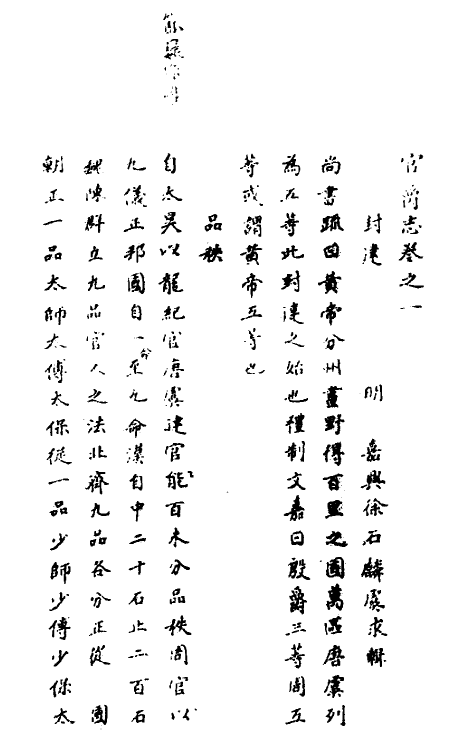 官爵志卷之一
封建 明 嘉興徐石麟虞求輯
尚書疏曰黃帝分州畫野得百里之國萬區唐虞列
為五等此封建之始也禮制文嘉曰殷爵三等周五
等或謂黃帝五等也
品秩
自太昊以龍紀官唐虞建官能百未分品秩周官以
九儀正邦國自一命至九命漢自中二千石止二百石
魏陳群立九品官人之法北齊九品各分正從 國
朝正一品太師太傅太保從一品少師少傅少保太